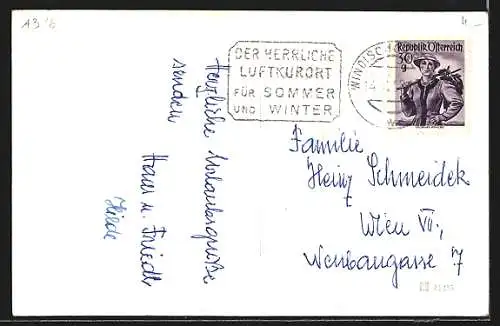 A3 16
DER HERRLICHE
LUFTKURORT
FÜR SOMMER
UND WINTER
WINDISC
Republik Österreich
30
g
Herzliche Urlaubsgrüße
senden
Hans u. Friedl
Hilde
Familie
Heinz Schmeidek
Wien VII.,
Neubaugasse 7